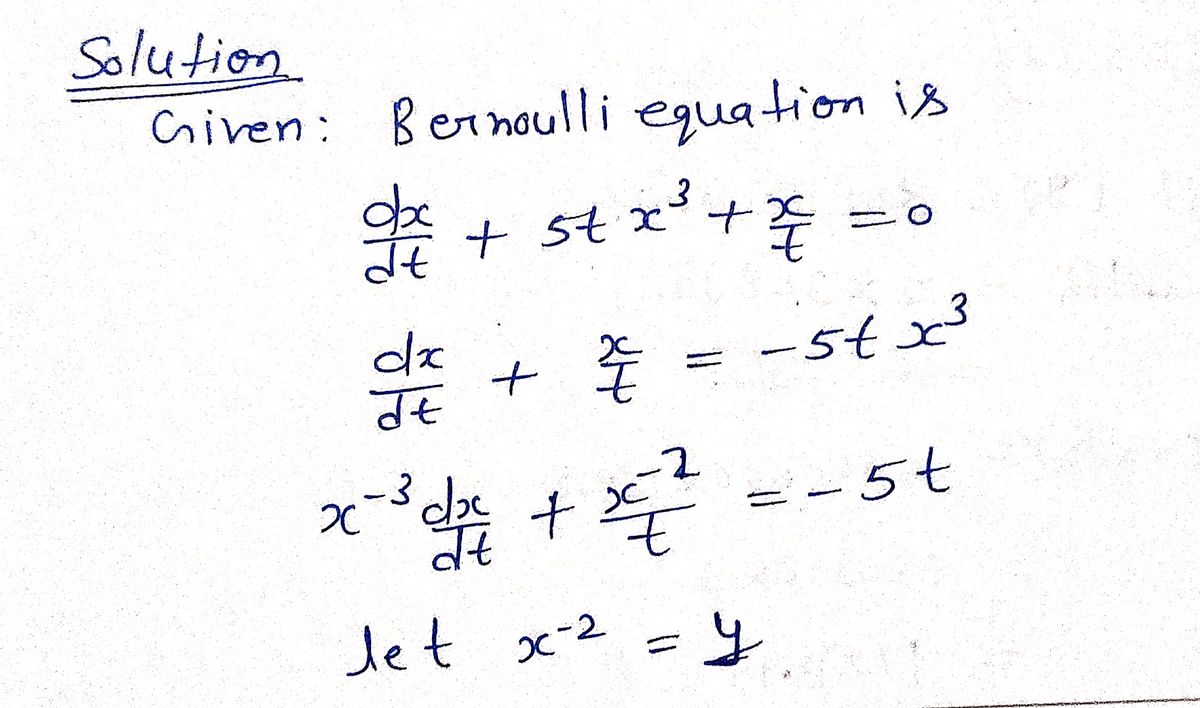 Solution
Given: Bernoulli equation is
dx/dt + 5t x³ + x/t = 0
dx/dt + x/t = -5t x³
x⁻³ dx/dt + x⁻²/t = -5t
let x⁻² = y